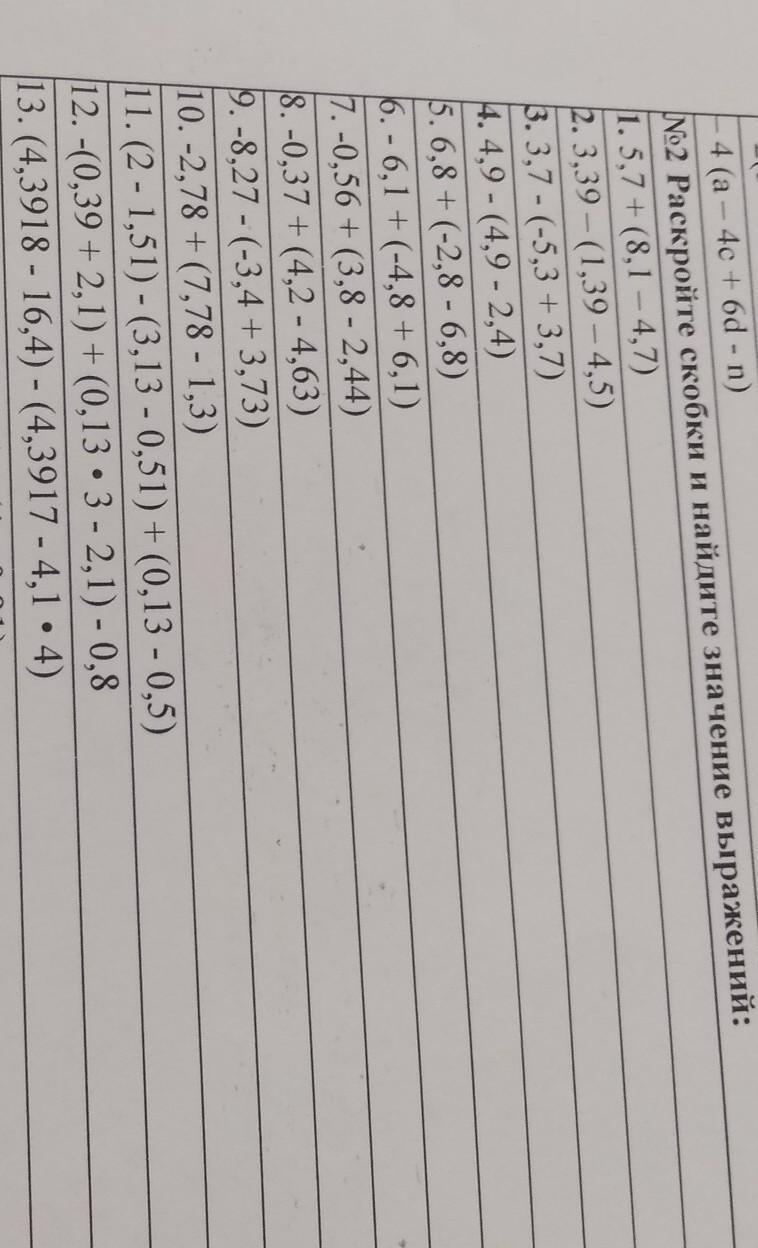 – 4 (a – 4c + 6d - n)
№2 Раскройте скобки и найдите значение выражений:
1. 5,7 + (8,1 – 4,7)
2. 3,39 – (1,39 – 4,5)
3. 3,7 - (-5,3 + 3,7)
4. 4,9 - (4,9 - 2,4)
5. 6,8 + (-2,8 - 6,8)
6. - 6,1 + (-4,8 + 6,1)
7. -0,56 + (3,8 - 2,44)
8. -0,37 + (4,2 - 4,63)
9. -8,27 - (-3,4 + 3,73)
10. -2,78 + (7,78 - 1,3)
11. (2 - 1,51) - (3,13 - 0,51) + (0,13 - 0,5)
12. -(0,39 + 2,1) + (0,13 • 3 - 2,1) - 0,8
13. (4,3918 - 16,4) - (4,3917 - 4,1 • 4)